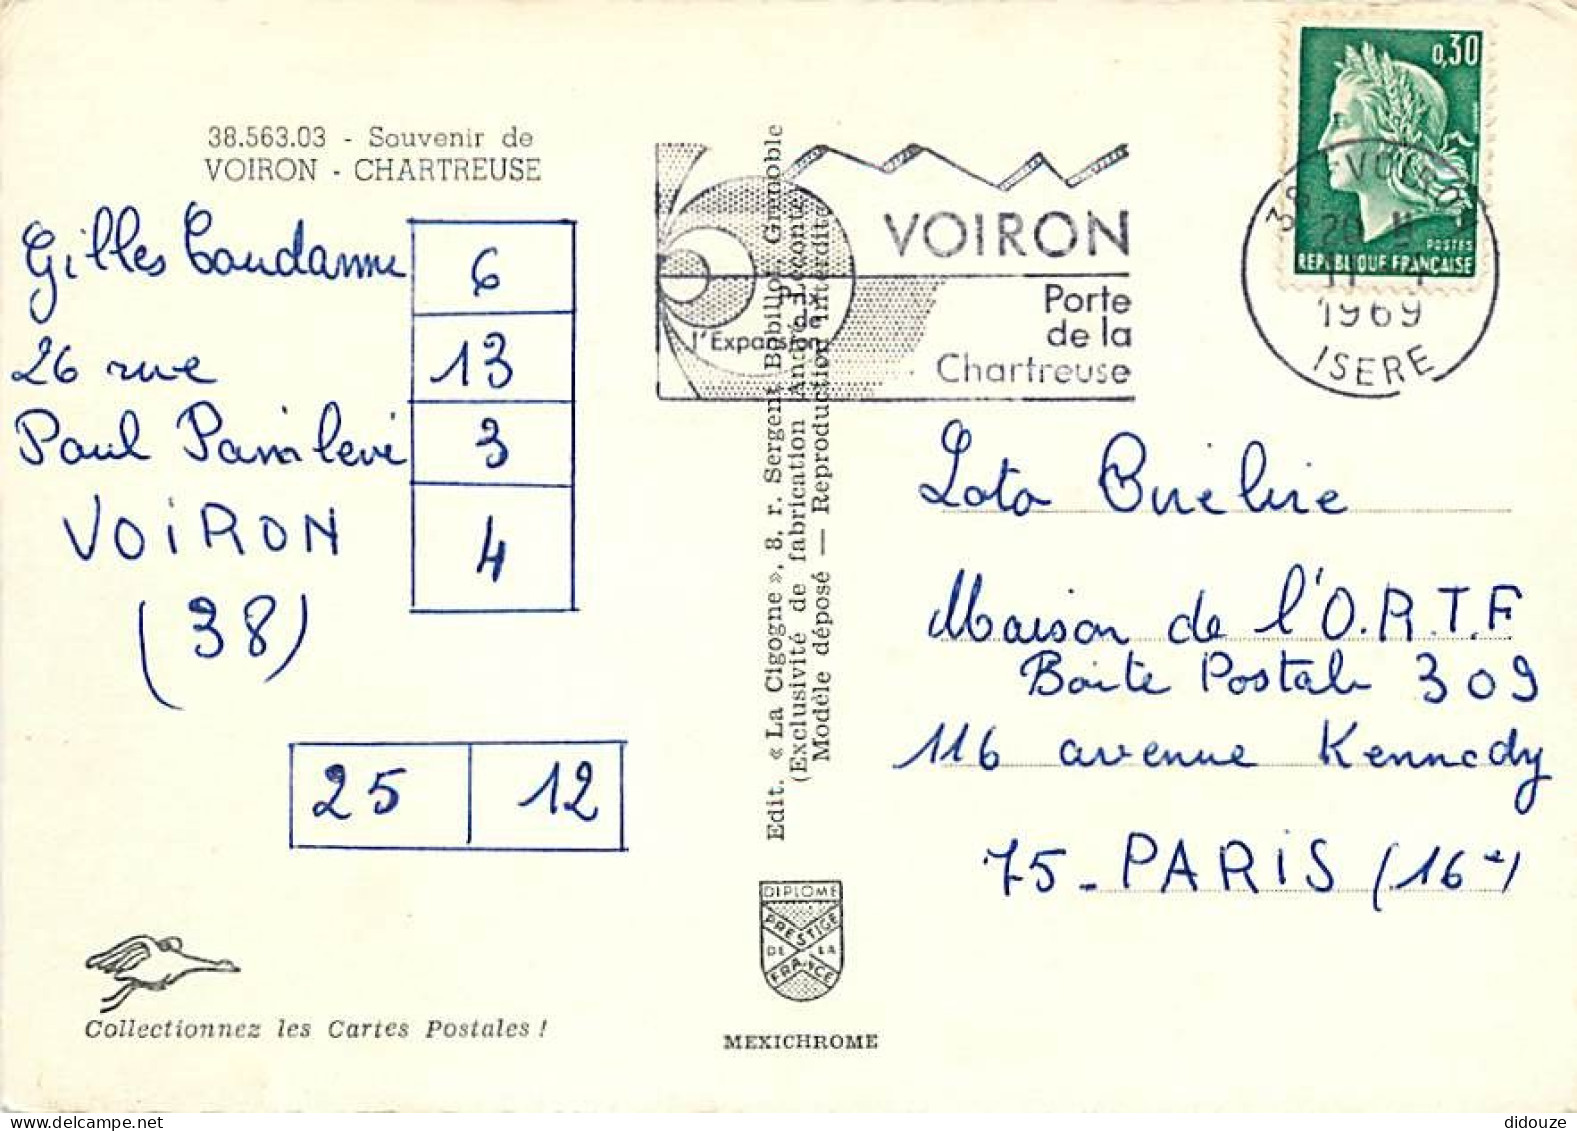 38.563.03 - Souvenir de
VOIRON - CHARTREUSE
Gilles
26 rue
Paul Painlevé
VOIRON
(38)
6
13
3
4
25 12
Collectionnez les Cartes Postales !
Edit. « La Cigogne », 8, r. Sergent Bobillot, Grenoble
(Exclusivité de fabrication André Leconte)
Modèle déposé — Reproduction interdite
DIPLOME
PRESTIGE
DE LA
FRANCE
MEXICHROME
Prix
de
l'Expansion
VOIRON
Porte
de la
Chartreuse
0,30
POSTES
REPUBLIQUE FRANÇAISE
38 VOIRON
1969
ISERE
Loto
Maison de l'O.R.T.F
Boite Postale 309
116 avenue Kennedy
75 - PARIS (16e)
didouze